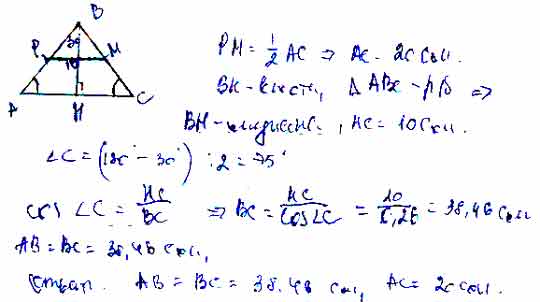 B
30°
P M
10
A H C
PM = 1/2 AC => AC = 20 см.
BH - высота, Δ ABC - р/б =>
BH - медиана, HC = 10 см.
∠C = (180° - 30°) : 2 = 75°
cos ∠C = HC/BC => BC = HC/cos∠C = 10/0,26 = 38,46 см
AB = BC = 38,46 см,
Ответ. AB = BC = 38,46 см, AC = 20 см.